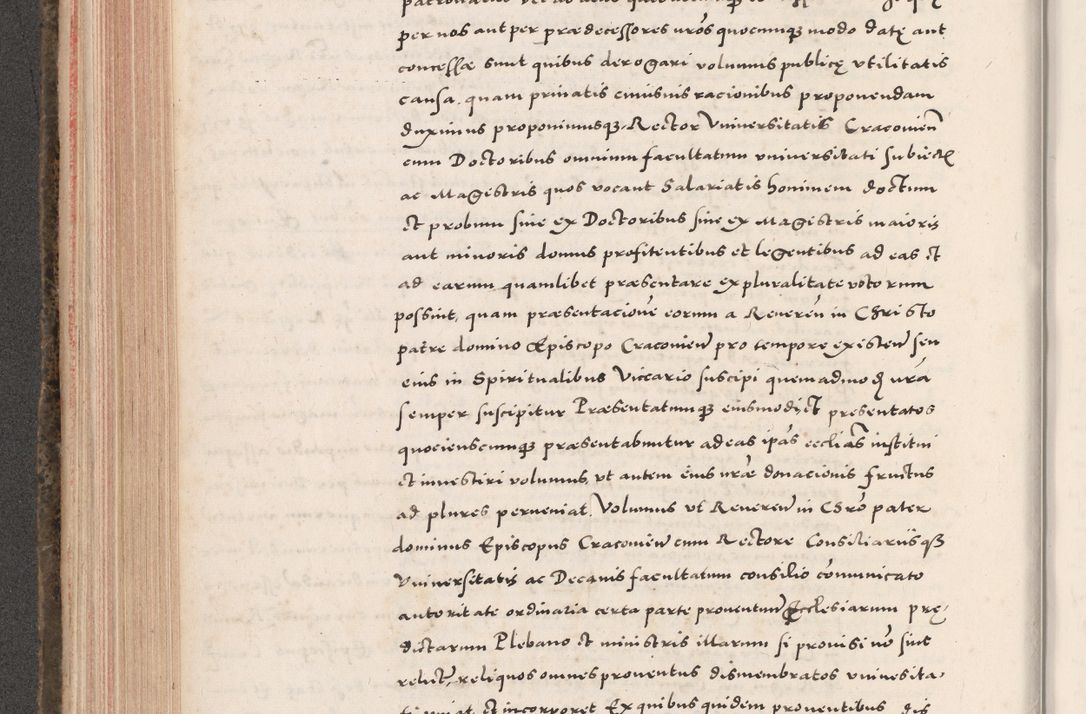 per nos aut per prædecessores nr̄os quocunqꝫ modo datę aut
concessæ sunt quibus derogari volumus publicę vtilitatis
causa. quam priuatis cuiusuis racionibus proponendam
duximus proponimusqꝫ Rector Vniuersitatis Cracouien̄
cum Doctoribus omnium facultatum vniuersitati subiectę
ac Magistris quos vocant Salariatis hominem doctum
et probum siue ex Doctoribus siue ex Magistris maioris
aut minoris domus profitentibus et legentibus ad eas et
ad earum quamlibet præsentare ex pluralitate votorum
possint, quam præsentacione eorum a Reueren̄ in Christo
patre domino Episcopo Cracouien̄ pro tempore existen̄ seu
eius in Spiritualibus Viccario suscipi quemadmoᵭ nr̄a
semper suscipitur Præsentatumqꝫ eiusmodi et presentatos
quocienscunqꝫ præsentabuntur ad eas ip̄as eccliās institui
et inuestiri volumus, vt autem eius nr̄æ donacionis fructus
ad plures perueniat, Volumus vt Reueren̄ in Chr̄o pater
dominus Episcopus Cracouien̄ cum Rectore Consiliariisqꝫ
Vniuersitatis ac Decanis facultatum consilio cōmunicato
autoritate ordinaria certa parte prouentuū Ecclesiarum prę-
dictarum Plebano et ministris illarum si prouisi nō sint
relicta, reliquos omnes prouentus dismembratos vniuersita-
ti vniat et incorporet Ex quibus quidem prouentibus dis